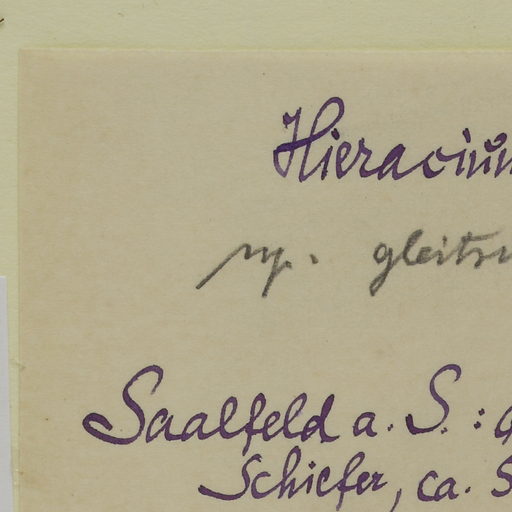 Hieracium
sp. gleits
Saalfeld a. S. :
Schiefer, ca. S